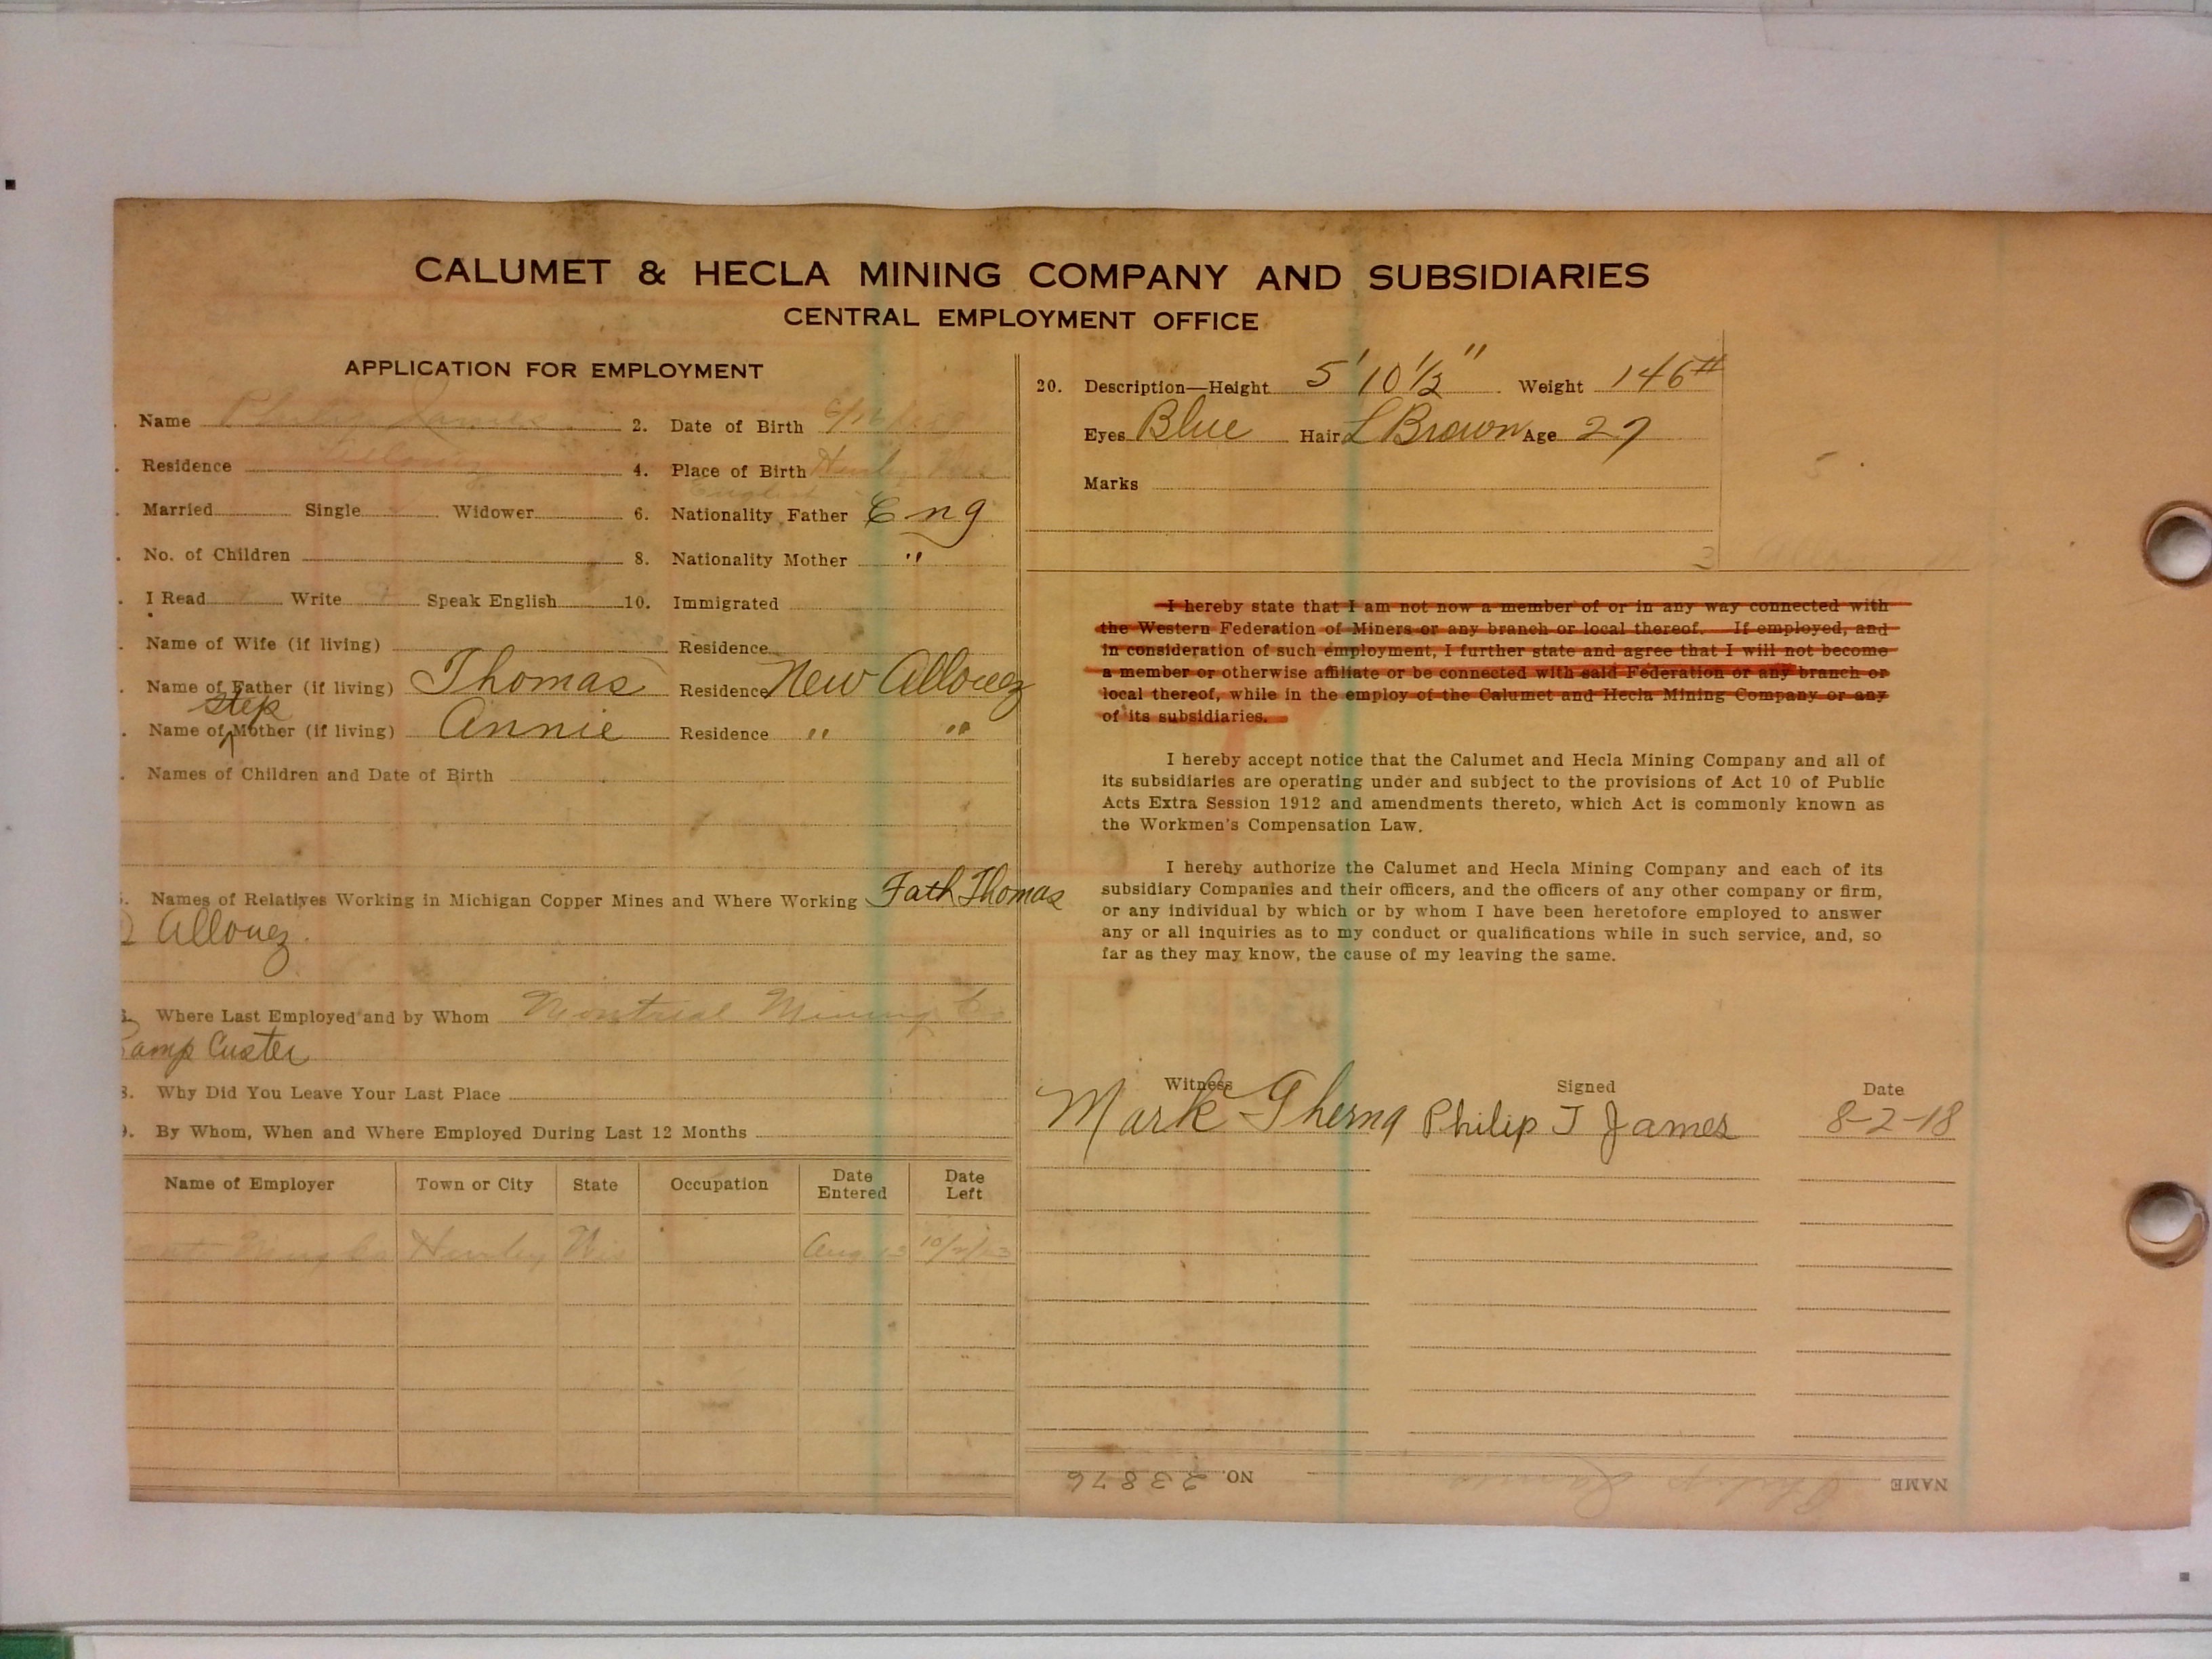 CALUMET & HECLA MINING COMPANY AND SUBSIDIARIES
CENTRAL EMPLOYMENT OFFICE
APPLICATION FOR EMPLOYMENT
Name Philip James 2. Date of Birth
Residence Allouez 4. Place of Birth Hurley Wis
English
Married Single Widower 6. Nationality Father Eng
No. of Children 8. Nationality Mother "
I Read Write Speak English 10. Immigrated
Name of Wife (if living) Residence
Name of Father (if living) Thomas Residence New Allouez
Step
Name of Mother (if living) Annie Residence " "
Names of Children and Date of Birth
Names of Relatives Working in Michigan Copper Mines and Where Working Fath Thomas
Allouez.
Where Last Employed and by Whom Montreal Mining Co
Camp Custer
8. Why Did You Leave Your Last Place
9. By Whom, When and Where Employed During Last 12 Months
Name of Employer Town or City State Occupation Date Entered Date Left
Mining Co Hurley Wis Aug 13 10/2/13
20. Description—Height 5' 10 1/2" Weight 146#
Eyes Blue Hair L Brown Age 27
Marks
I hereby state that I am not now a member of or in any way connected with
the Western Federation of Miners or any branch or local thereof. If employed, and
in consideration of such employment, I further state and agree that I will not become
a member or otherwise affiliate or be connected with said Federation or any branch or
local thereof, while in the employ of the Calumet and Hecla Mining Company or any
of its subsidiaries.
I hereby accept notice that the Calumet and Hecla Mining Company and all of
its subsidiaries are operating under and subject to the provisions of Act 10 of Public
Acts Extra Session 1912 and amendments thereto, which Act is commonly known as
the Workmen's Compensation Law.
I hereby authorize the Calumet and Hecla Mining Company and each of its
subsidiary Companies and their officers, and the officers of any other company or firm,
or any individual by which or by whom I have been heretofore employed to answer
any or all inquiries as to my conduct or qualifications while in such service, and, so
far as they may know, the cause of my leaving the same.
Witness Signed Date
Mark Philip T James 8-2-18
NAME Philip James NO. 23876